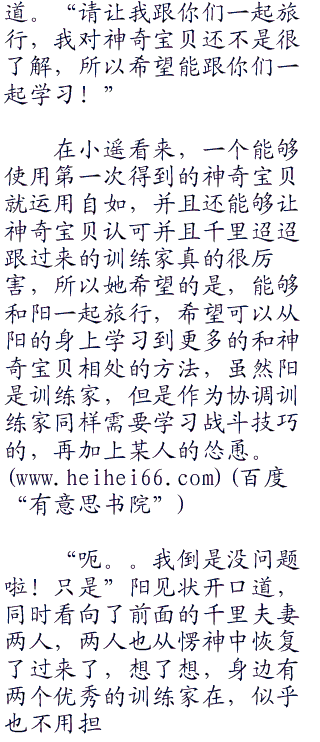 道。“请让我跟你们一起旅
行，我对神奇宝贝还不是很
了解，所以希望能跟你们一
起学习！”
在小遥看来，一个能够
使用第一次得到的神奇宝贝
就运用自如，并且还能够让
神奇宝贝认可并且千里迢迢
跟过来的训练家真的很厉
害，所以她希望的是，能够
和阳一起旅行，希望可以从
阳的身上学习到更多的和神
奇宝贝相处的方法，虽然阳
是训练家，但是作为协调训
练家同样需要学习战斗技巧
的，再加上某人的怂恿。
(www.heihei66.com)(百度
“有意思书院”)
“呃。。我倒是没问题
啦！只是”阳见状开口道，
同时看向了前面的千里夫妻
两人，两人也从愣神中恢复
了过来了，想了想，身边有
两个优秀的训练家在，似乎
也不用担